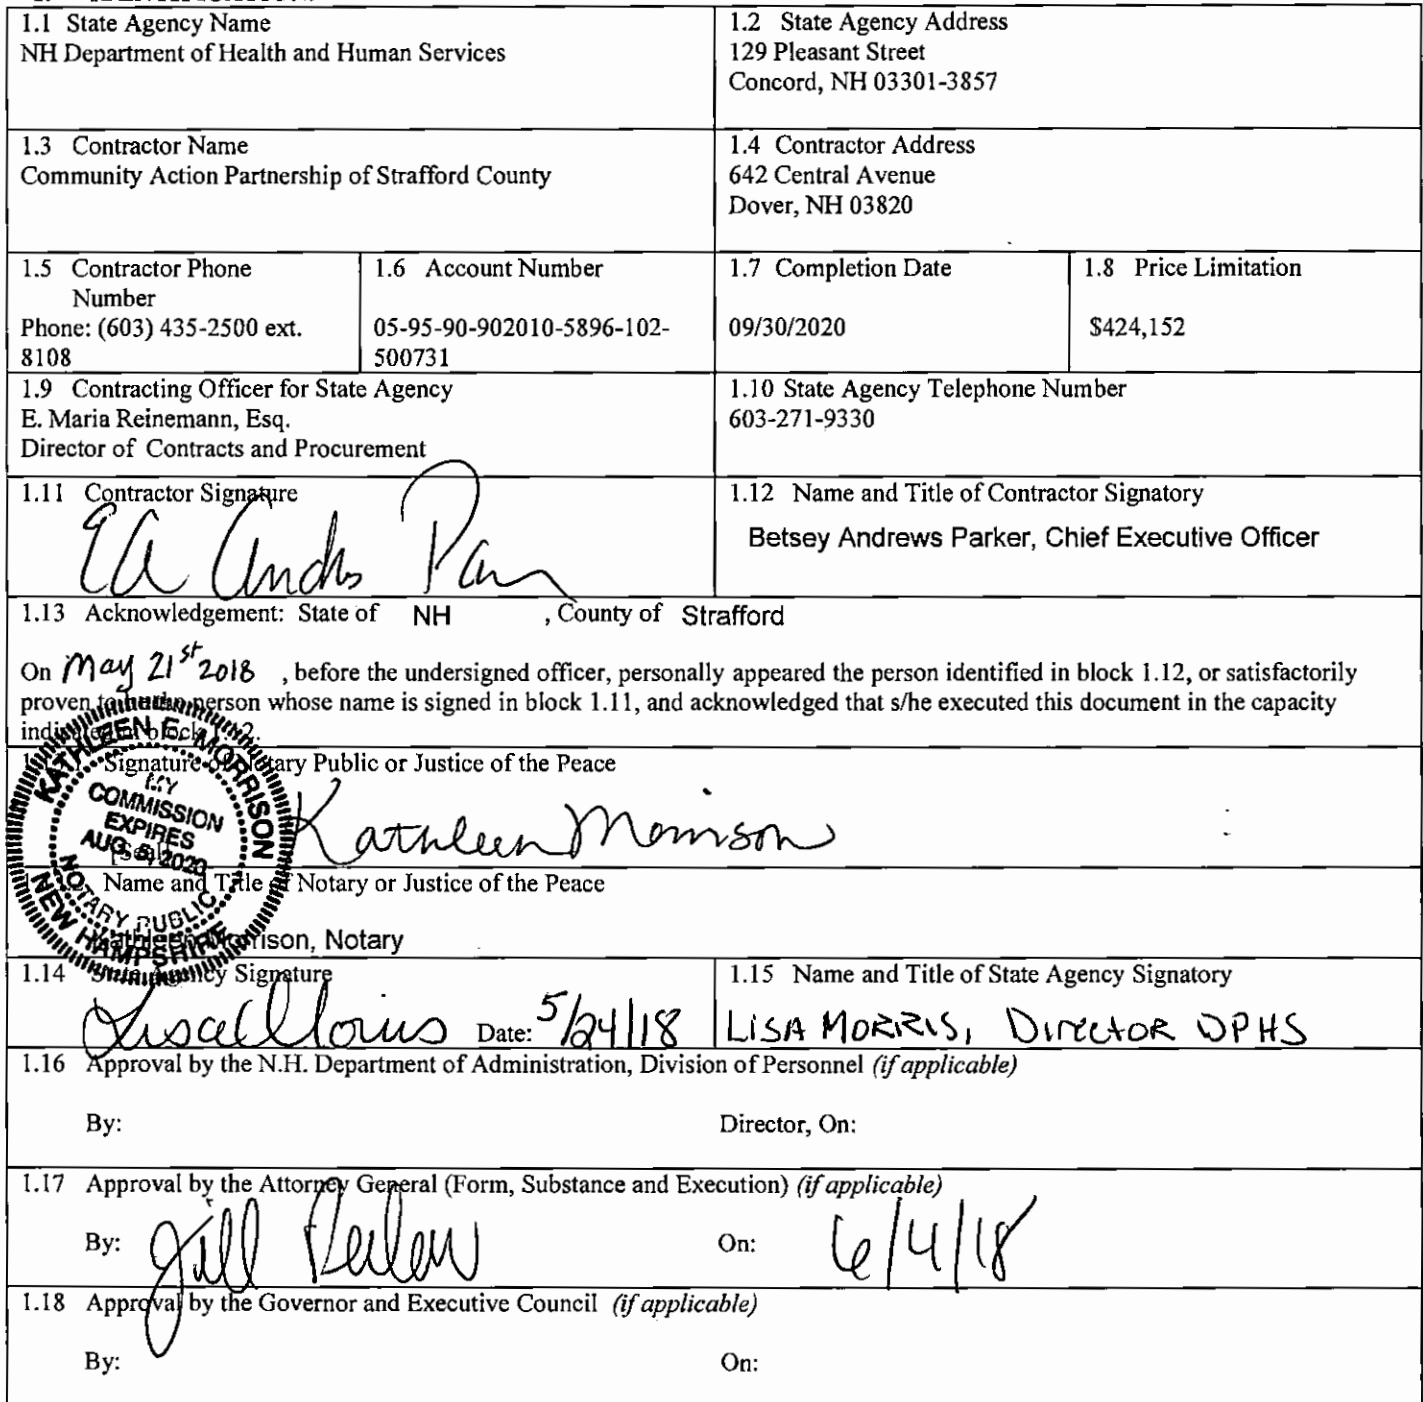 1.1 State Agency Name
NH Department of Health and Human Services
1.2 State Agency Address
129 Pleasant Street
Concord, NH 03301-3857
1.3 Contractor Name
Community Action Partnership of Strafford County
1.4 Contractor Address
642 Central Avenue
Dover, NH 03820
1.5 Contractor Phone
Number
Phone: (603) 435-2500 ext.
8108
1.6 Account Number
05-95-90-902010-5896-102-
500731
1.7 Completion Date
09/30/2020
1.8 Price Limitation
$424,152
1.9 Contracting Officer for State Agency
E. Maria Reinemann, Esq.
Director of Contracts and Procurement
1.10 State Agency Telephone Number
603-271-9330
1.11 Contractor Signature
1.12 Name and Title of Contractor Signatory
Betsey Andrews Parker, Chief Executive Officer
1.13 Acknowledgement: State of NH , County of Strafford
On May 21st 2018 , before the undersigned officer, personally appeared the person identified in block 1.12, or satisfactorily
proven person whose name is signed in block 1.11, and acknowledged that s/he executed this document in the capacity
block
Signature of Notary Public or Justice of the Peace
KATHLEEN E. MORRISON
MY
COMMISSION
EXPIRES
AUG. 5, 2020
NOTARY PUBLIC
NEW HAMPSHIRE
[Seal]
Kathleen Morrison
Name and Title of Notary or Justice of the Peace
Kathleen Morrison, Notary
1.14 State Agency Signature
Date: 5/24/18
1.15 Name and Title of State Agency Signatory
LISA MORRIS, DIRECTOR DPHS
1.16 Approval by the N.H. Department of Administration, Division of Personnel (if applicable)
By: Director, On:
1.17 Approval by the Attorney General (Form, Substance and Execution) (if applicable)
By: Jill On: 6/4/18
1.18 Approval by the Governor and Executive Council (if applicable)
By: On: